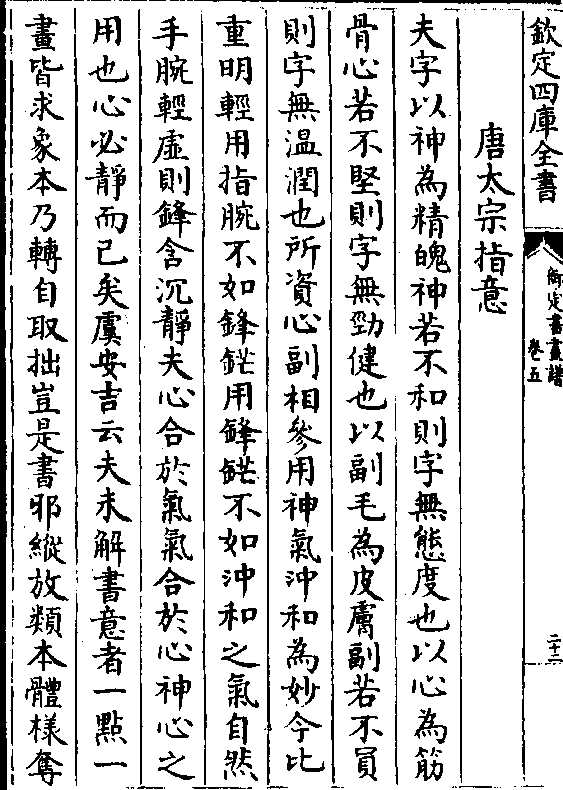 欽定四庫全書
御定書畫譜
卷五
二十二
唐太宗指意
夫字以神為精魄神若不和則字無態度也以心為筋
骨心若不堅則字無勁健也以副毛為皮膚副若不員
則字無温潤也所資心副相參用神氣沖和為妙今比
重明輕用指腕不如鋒鋩用鋒鋩不如沖和之氣自然
手腕輕虛則鋒含沉靜夫心合於氣氣合於心神心之
用也心必靜而已矣虞安吉云夫未解書意者一點一
畫皆求象本乃轉自取拙豈是書邪縱放類本體様奪